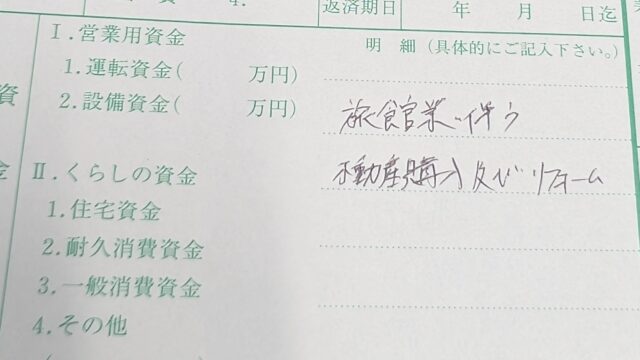 4.
返済期日 年 月 日迄
Ⅰ.営業用資金
明 細(具体的にご記入下さい。)
1.運転資金( 万円)
2.設備資金( 万円)
旅館業に伴う
資
Ⅱ.くらしの資金
不動産購入及びリフォーム
金
1.住宅資金
2.耐久消費資金
3.一般消費資金
4.その他